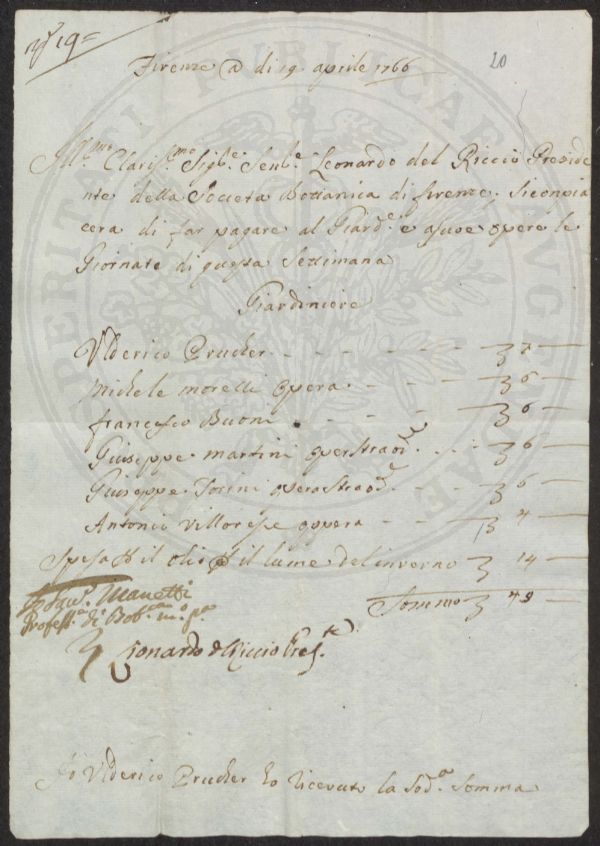 19=
20
Firenze a di 19 aprile 1766
Ill.mo Claris.mo Sig.re Sen.re Leonardo del Riccio Preside
nte della Societa Bottanica di firenze, si conpia
cera di far pagare al Giard.e e a sue opere le
Giornate di questa Settimana
Giardiniere
Vlderico Prucher - - - - - - - 3 7 —
Michele morelli opera - - - - - 3 6 —
francesco Buoni - - - - - 3 6 —
Giuseppe martini opera straord.e - - 3 6 —
Giuseppe Torini opera straord.e - - - 3 6 —
Antonio Villorese oppera - - - - 3 4 —
Spesa p il olio p il lume del inverno 3 14 —
Sommo 3 49 —
Io Sav.o Manetti
Profess.e di Bot.ca m.o p.a
Leonardo del Riccio Pres.te
Io Vlderico Prucher ho riceuto la Sod.a Somma